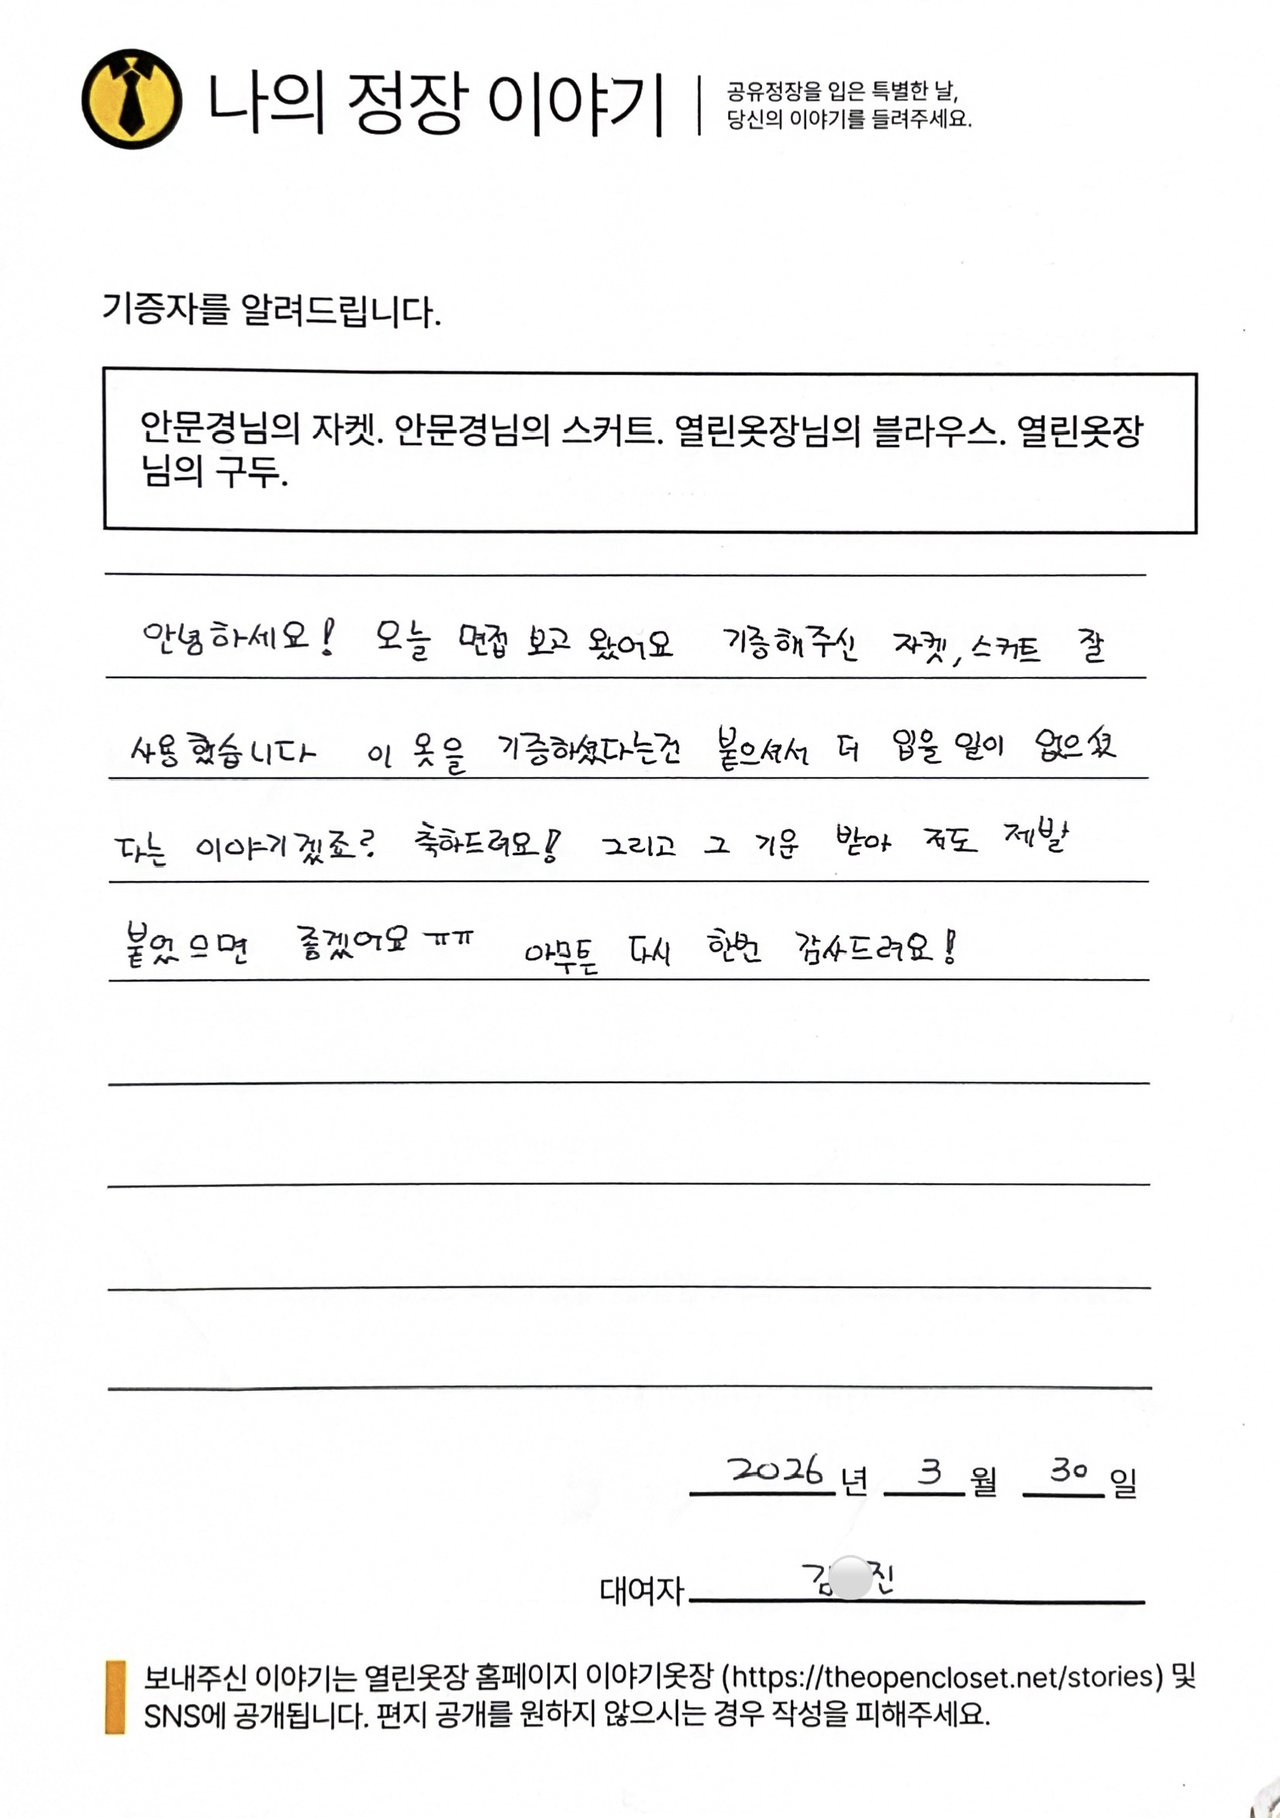 나의 정장 이야기
공유정장을 입은 특별한 날,
당신의 이야기를 들려주세요.
기증자를 알려드립니다.
안문경님의 자켓. 안문경님의 스커트. 열린옷장님의 블라우스. 열린옷장
님의 구두.
안녕하세요! 오늘 면접 보고 왔어요 기증해주신 자켓, 스커트 잘
사용했습니다 이 옷을 기증하셨다는건 붙으셔서 더 입을 일이 없으셨
다는 이야기겠죠? 축하드려요! 그리고 그 기운 받아 저도 제발
붙었으면 좋겠어요 ㅠㅠ 아무튼 다시 한번 감사드려요!
2026 년 3 월 30 일
대여자 김 진
보내주신 이야기는 열린옷장 홈페이지 이야기옷장 (https://theopencloset.net/stories) 및
SNS에 공개됩니다. 편지 공개를 원하지 않으시는 경우 작성을 피해주세요.